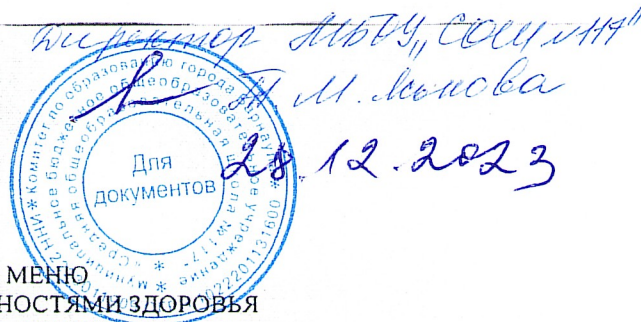 Директор МБОУ „СОШ №117"
Т. М.
28.12.2023
* Комитет по образованию города Барнаула *
муниципальное бюджетное общеобразовательное учреждение
"Средняя общеобразовательная школа №117"
Для
документов
МЕНЮ
НОСТЯМИ ЗДОРОВЬЯ